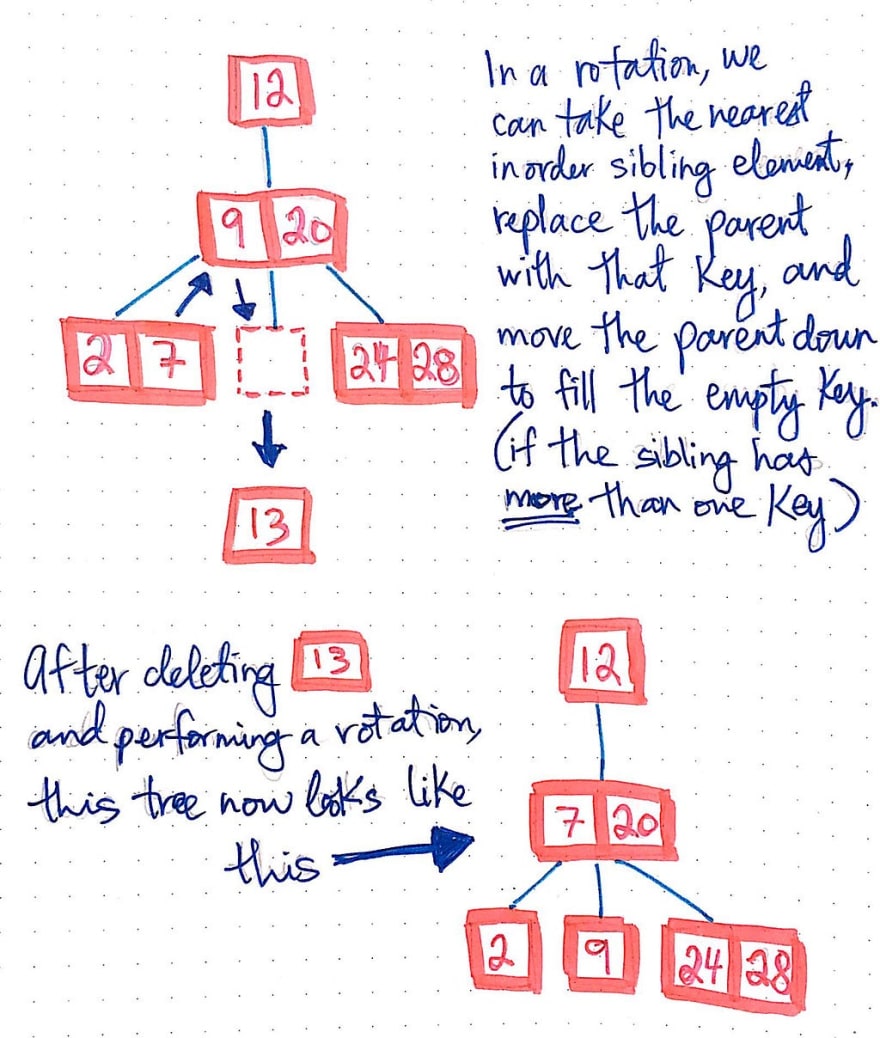 12
In a rotation, we
can take the nearest
inorder sibling element,
replace the parent
with that key, and
move the parent down
to fill the empty key.
(if the sibling has
more than one key)
9 20
2 7
24 28
13
After deleting 13
and performing a rotation,
this tree now looks like
this
12
7 20
2 9 24 28